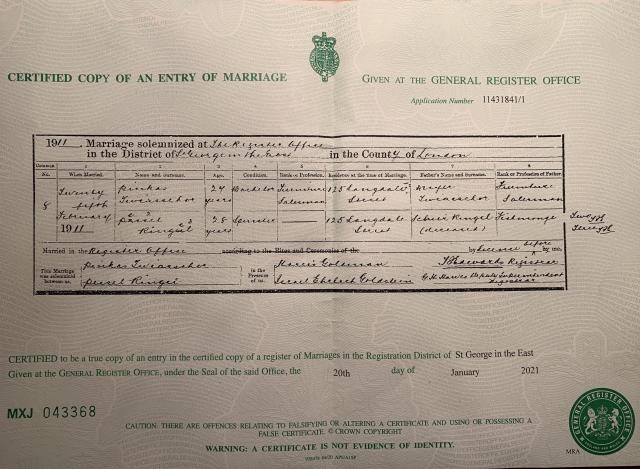 CERTIFIED COPY OF AN ENTRY OF MARRIAGE
GIVEN AT THE GENERAL REGISTER OFFICE
Application Number 11431841/1
1911. Marriage solemnized at The Register Office
in the District of St George in the East in the County of London
1 2 3 4 5 6 7 8
No. When Married. Name and surname. Age. Condition. Rank or Profession. Residence at the time of Marriage. Father's Name and Surname. Rank or Profession of Father.
8 Twenty fifth February 1911
Pinkas 24 years Bachelor Furniture Salesman 125 Langdale Street Furniture Salesman
Pessel Ringel 28 years Spinster 125 Langdale Street Ringel (deceased) Fishmonger
Married in the Register Office according to the Rites and Ceremonies of the by Licence before by me,
This Marriage was solemnized between us,
Pinkas
Pessel Ringel
in the Presence of us,
Morris Goldman
Israel Goldstein
Registrar
Deputy Superintendent Registrar
CERTIFIED to be a true copy of an entry in the certified copy of a register of Marriages in the Registration District of St George in the East
Given at the GENERAL REGISTER OFFICE, under the Seal of the said Office, the 20th day of January 2021
MXJ 043368
CAUTION: THERE ARE OFFENCES RELATING TO FALSIFYING OR ALTERING A CERTIFICATE AND USING OR POSSESSING A
FALSE CERTIFICATE. © CROWN COPYRIGHT
WARNING: A CERTIFICATE IS NOT EVIDENCE OF IDENTITY.
GENERAL REGISTER OFFICE
MRA